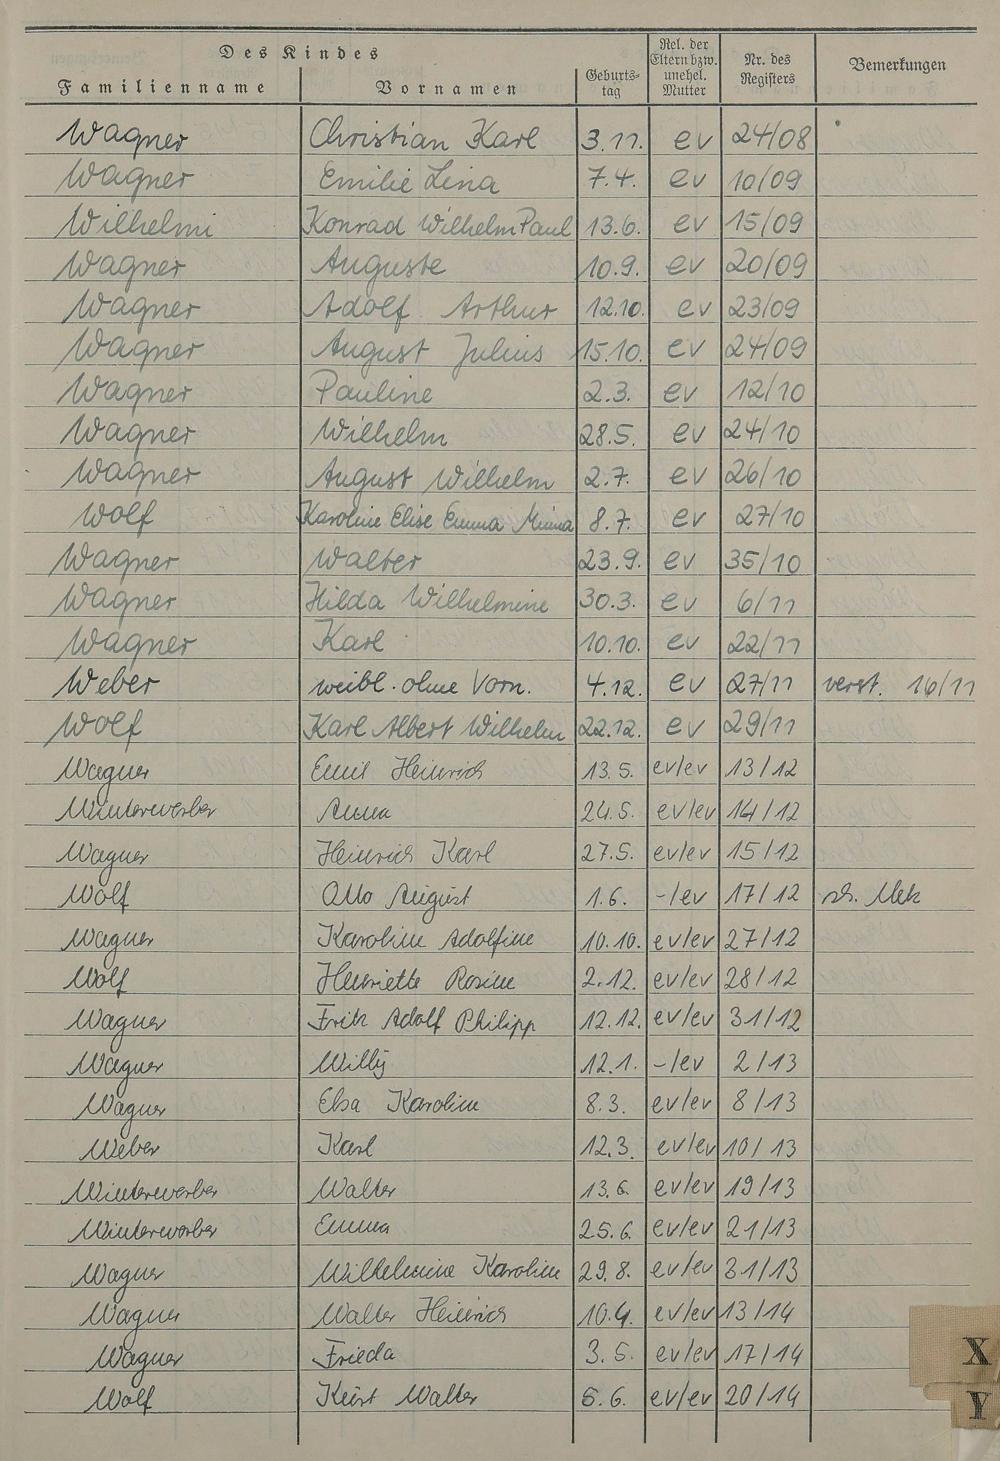 Des Kindes
Familienname Vornamen Geburts-tag Rel. der Eltern bzw. unehel. Mutter Nr. des Registers Bemerkungen
Wagner Christian Karl 3.11. ev 24/08
Wagner Emilie Lina 7.4. ev 10/09
Wilhelmi Konrad Wilhelm Paul 13.6. ev 15/09
Wagner Auguste 10.9. ev 20/09
Wagner Adolf Arthur 12.10. ev 23/09
Wagner August Julius 15.10. ev 24/09
Wagner Pauline 2.3. ev 12/10
Wagner Wilhelm 28.5. ev 24/10
Wagner August Wilhelm 2.7. ev 26/10
Wolf Karoline Elise Emma Minna 8.7. ev 27/10
Wagner Walter 23.9. ev 35/10
Wagner Hilda Wilhelmine 30.3. ev 6/11
Wagner Karl 10.10. ev 22/11
Weber weibl. ohne Vorn. 4.12. ev 27/11 verst. 16/11
Wolf Karl Albert Wilhelm 22.12. ev 29/11
Wagner Emil Heinrich 13.5. ev/ev 13/12
Winterwerber Anna 24.5. ev/ev 14/12
Wagner Heinrich Karl 27.5. ev/ev 15/12
Wolf Otto August 1.6. -/ev 17/12
Wagner Karoline Adolfine 10.10. ev/ev 27/12
Wolf Henriette Rosine 2.12. ev/ev 28/12
Wagner Fritz Adolf Philipp 12.12. ev/ev 31/12
Wagner Willy 12.1. -/ev 2/13
Wagner Elsa Karoline 8.3. ev/ev 8/13
Weber Karl 12.3. ev/ev 10/13
Winterwerber Walter 13.6. ev/ev 19/13
Winterwerber Emma 25.6. ev/ev 21/13
Wagner Wilhelmine Karoline 29.8. ev/ev 31/13
Wagner Walter Heinrich 10.4. ev/ev 13/14
Wagner Frieda 3.5. ev/ev 17/14
X
Wolf Kurt Walter 6.6. ev/ev 20/14
Y